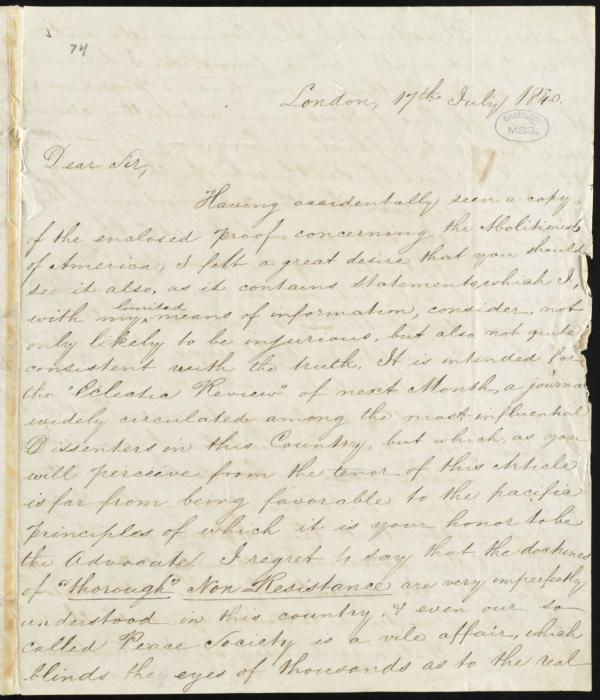 74
London, 17th July 1840.
GARRISON
MSS.
Dear Sir,
Having accidentally seen a copy
of the enclosed proof concerning the Abolitionists
of America, I felt a great desire that you should
see it also, as it contains statements which I,
with my limited means of information, consider, not
only likely to be injurious, but also not quite
consistent with the truth. It is intended for
the "Eclectic Review" of next Month, a journal
widely circulated among the most influential
Dissenters in this Country, but which, as you
will perceive from the tenor of this Article
is far from being favorable to the pacific
principles of which it is your honor to be
the Advocate. I regret to say that the doctrines
of "thorough" Non-Resistance are very imperfectly
understood in this country, & even our so-
called Peace Society is a vile affair, which
blinds the eyes of thousands as to the real